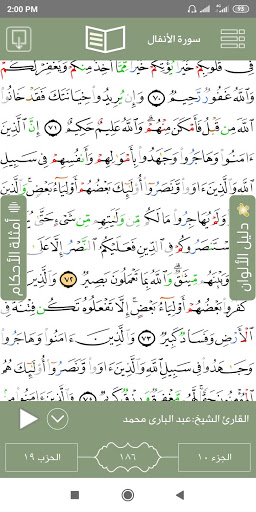 2:00 PM
93
سورة الأنفال
فِى قُلُوبِكُمْ خَيْرًا يُؤْتِكُمْ خَيْرًا مِّمَّآ أُخِذَ مِنكُمْ وَيَغْفِرْ لَكُمْ
وَٱللَّهُ غَفُورٌ رَّحِيمٌ ٧٠ وَإِن يُرِيدُوا۟ خِيَانَتَكَ فَقَدْ خَانُوا۟
ٱللَّهَ مِن قَبْلُ فَأَمْكَنَ مِنْهُمْ وَٱللَّهُ عَلِيمٌ حَكِيمٌ ٧١ إِنَّ ٱلَّذِينَ
ءَامَنُوا۟ وَهَاجَرُوا۟ وَجَٰهَدُوا۟ بِأَمْوَٰلِهِمْ وَأَنفُسِهِمْ فِى سَبِيلِ
ٱللَّهِ وَٱلَّذِينَ ءَاوَوا۟ وَّنَصَرُوٓا۟ أُو۟لَٰٓئِكَ بَعْضُهُمْ أَوْلِيَآءُ بَعْضٍ وَٱلَّذِينَ
وَلَمْ يُهَاجِرُوا۟ مَا لَكُم مِّن وَلَٰيَتِهِم مِّن شَىْءٍ حَتَّىٰ
ٱسْتَنصَرُوكُمْ فِى ٱلدِّينِ فَعَلَيْكُمُ ٱلنَّصْرُ إِلَّا عَلَىٰ
مِّيثَٰقٌ وَٱللَّهُ بِمَا تَعْمَلُونَ بَصِيرٌ ٧٢
كَفَرُوا۟ بَعْضُهُمْ أَوْلِيَآءُ بَعْضٍ إِلَّا تَفْعَلُوهُ تَكُن فِتْنَةٌ فِى
ٱلْأَرْضِ وَفَسَادٌ كَبِيرٌ ٧٣ وَٱلَّذِينَ ءَامَنُوا۟ وَهَاجَرُوا۟
وَجَٰهَدُوا۟ فِى سَبِيلِ ٱللَّهِ وَٱلَّذِينَ ءَاوَوا۟ وَّنَصَرُوٓا۟ أُو۟لَٰٓئِكَ هُمُ
دليل الألوان
أمثلة الأحكام
القارئ الشيخ:عبد البارى محمد
الجزء ١٠
١٨٦
الحزب ١٩